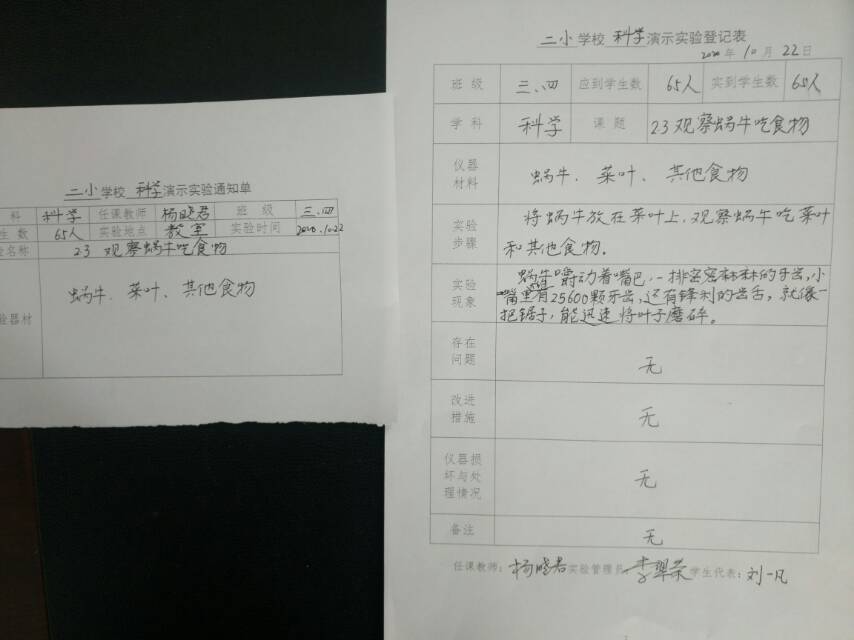 二小学校 科学演示实验通知单
科 科学 任课教师 杨晓君 班 级 三.四
生 数 65人 实验地点 教室 实验时间 2020.10.22
名称 23 观察蜗牛吃食物
验器材 蜗牛、菜叶、其他食物
二小学校 科学演示实验登记表
2020年10月22日
班 级 三.四 应到学生数 65人 实到学生数 65人
学 科 科学 课 题 23观察蜗牛吃食物
仪器
材料
蜗牛、菜叶、其他食物
实验
步骤
将蜗牛放在菜叶上,观察蜗牛吃菜叶
和其他食物.
实验
现象
蜗牛嚼动着嘴巴.一排密密麻麻的牙齿,小
嘴里有25600颗牙齿,还有锋利的齿舌,就像一
把锯子,能迅速将叶子磨碎。
存在
问题
无
改进
措施
无
仪器损
坏与处
理情况
无
备注 无
任课教师:杨晓君 实验管理员 李翠荣 学生代表:刘一凡